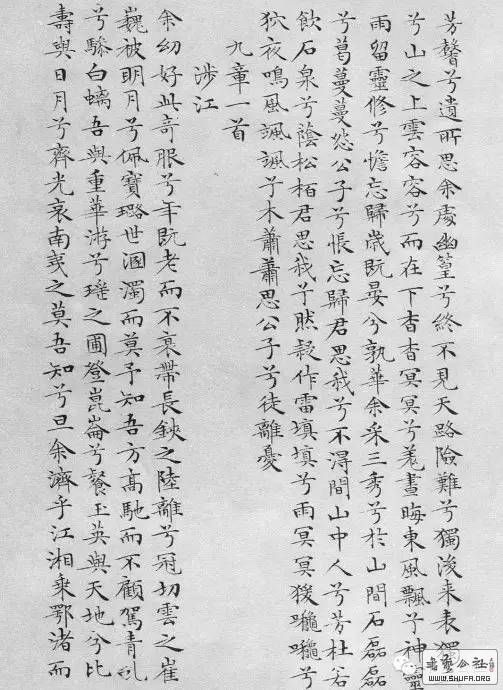 芳馨兮遺所思余處幽篁兮終不見天路險難兮獨後来表獨
兮山之上雲容容兮而在下杳杳冥冥兮羌晝晦東風飄兮神靈
雨留靈修兮憺忘歸歲既晏兮孰華余采三秀兮於山間石磊磊
兮葛蔓蔓怨公子兮悵忘歸君思我兮不得間山中人兮芳杜若
飲石泉兮蔭松栢君思我兮然疑作雷填填兮雨冥冥猨兮
狖夜鳴風颯颯兮木蕭蕭思公子兮徒離憂
九章一首
涉江
余幼好此奇服兮年既老而不衰帶長鋏之陸離兮冠切雲之崔
巍被明月兮佩寶璐世溷濁而莫予知吾方高馳而不顧駕青虬
兮驂白螭吾與重華游兮瑤之圃登崑崙兮餐玉英與天地兮比
壽與日月兮齊光哀南夷之莫吾知兮旦余濟乎江湘乘鄂渚而
書藝公社
WWW.SHUFA.ORG